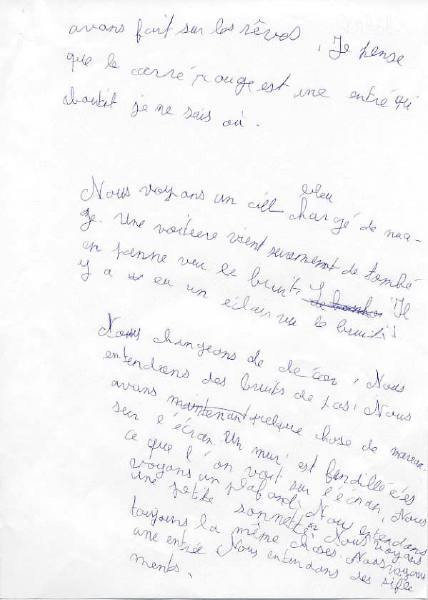 avons fait sur les rêves. Je pense
que le carré rouge est une entré qui
aboutit je ne sais où.
Nous voyons un ciel bleu chargé de nua-
ge. Une voiture vient surement de tombé
en panne vu le bruit. Il
y a eu un éclair vu le bruit!
Nous changeons de décor. Nous
entendons des bruits de pas. Nous
avons maintenant quelque chose de
sur l'écran. Un mur est fendillé c'est
ce que l'on voit sur l'écran. Nous
voyons un plafond. Nous entendons
une petite sonnette. Nous voyons
toujours la même choses. Nous voyons
une entrée. Nous entendons des siffle
ments.